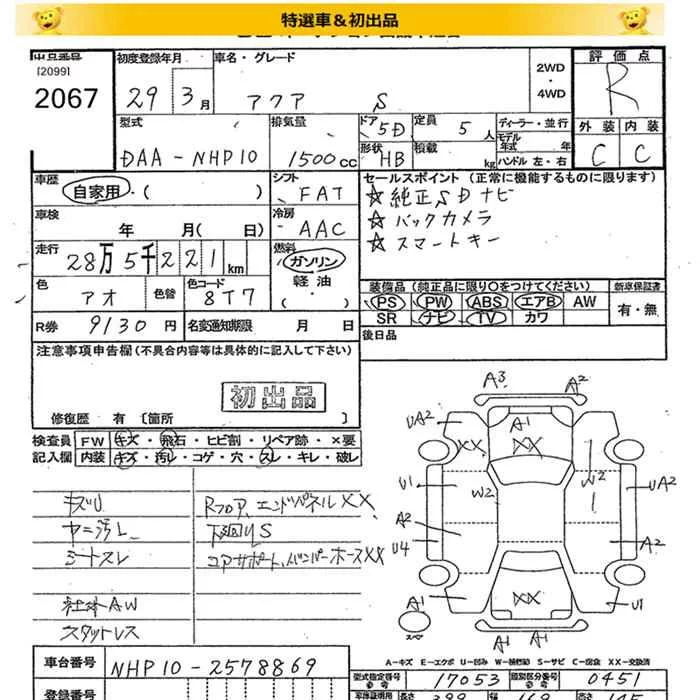 特選車&初出品
出品番号 初度登録年月 車名・グレード 評価点
[2099]
2067 29 3月 アクア S 2WD・4WD R
型式 排気量 ドア 5D 定員 5人 ディーラー・並行 外装 内装
DAA-NHP10 1500cc 形状 HB 積載 kg モデル年式 年 ハンドル 左・右 C C
車歴 自家用・( ) シフト FAT セールスポイント (正常に機能するものに限ります)
☆純正SDナビ
車検 年 月( 日) 冷房 AAC ☆バックカメラ
☆スマートキー
走行 28万5千221km 燃料 ガソリン・軽油・( )
色 アオ 色替 色コード 8T7 装備品 (純正品に限り○をつけてください) 新車保証書
PS PW ABS エアB AW 有・無
SR ナビ TV カワ
R券 9130円 名変通知期限 月 日 後日品
注意事項申告欄 (不具合内容等は具体的に記入して下さい)
初出品
修復歴 有 [箇所 ]
検査員 FW キズ・飛石・ヒビ割・リペア跡・×要
記入欄 内装 キズ・汚レ・コゲ・穴・スレ・キレ・破レ
キズU Rフロア、エンドパネルXX、
ヤニ汚レ 下廻りS
シートスレ コアサポート、バンパーホースXX
社外AW
スタットレス
A3 A2
UA2 A1
XX XX
U1 W2 W2 UA2
A2
U4 A2
XX
A1 U1
スペア A1 A1
A-キズ E-エクボ U-凹み W-補修跡 S-サビ C-腐食 XX-交換済
車台番号 NHP10-2578869 型式指定番号 参考 17053 類別区分番号 参考 0451
登録番号 長さ 399 幅 169 高さ 145